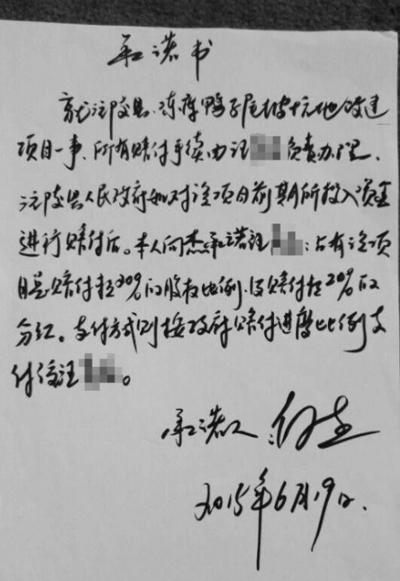 承诺书
就沅陵县凉水井鸭子尾
项目一事、所有赔付手续由汪负责办理、
沅陵县人民政府如对该项目前期所投入资金
进行赔付后。本人向杰承诺汪:占有该项
目总赔付款30%的股权比例,按赔付款20%的
分红。支付方式则按政府赔付进度比例支
付给汪。
承诺人:向杰
2015年6月19日.